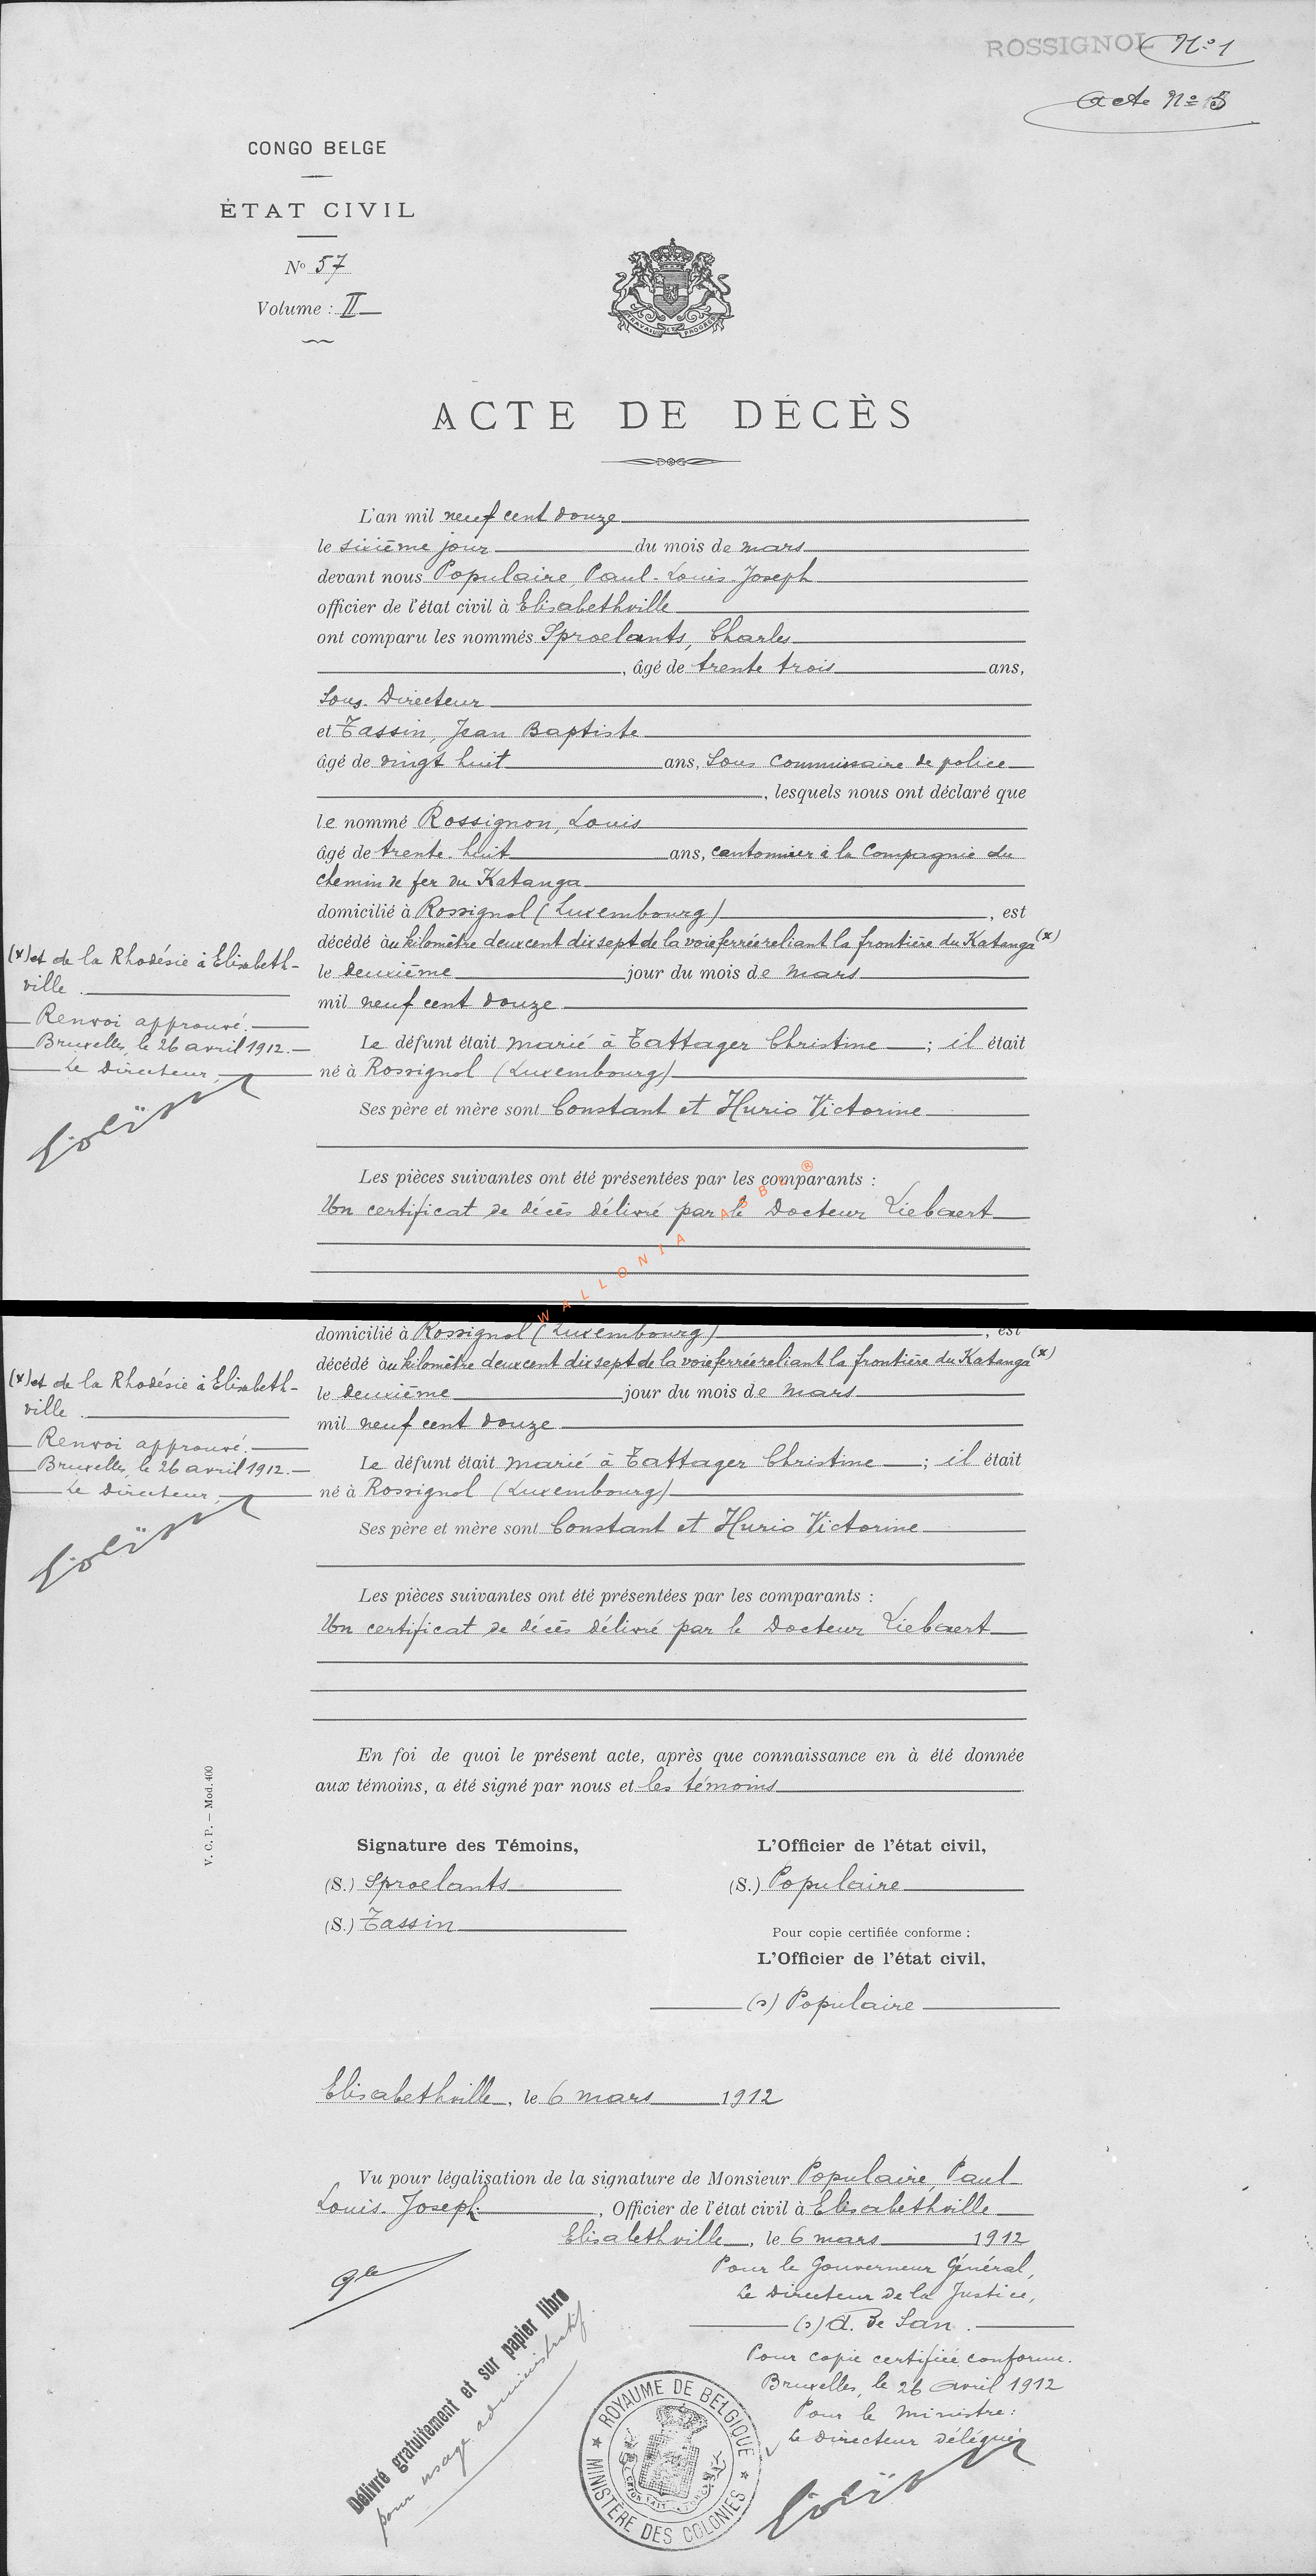 ROSSIGNOL Nº 1
Acte Nº 15
CONGO BELGE
ÉTAT CIVIL
Nº 57
Volume : II
TRAVAIL ET PROGRÈS
ACTE DE DÉCÈS
L'an mil neuf cent douze
le sixième jour du mois de mars
devant nous Populaire, Paul-Louis-Joseph
officier de l'état civil à Elisabethville
ont comparu les nommés Sproelants, Charles
, âgé de trente trois ans,
Sous-Directeur
et Tassin, Jean Baptiste
âgé de vingt huit ans, Sous Commissaire de police
, lesquels nous ont déclaré que
le nommé Rossignon, Louis
âgé de trente-huit ans, cantonnier à la Compagnie du
chemin de fer du Katanga
domicilié à Rossignol (Luxembourg), est
décédé au kilomètre deux cent dix sept de la voie ferrée reliant la frontière du Katanga (x)
(x) et de la Rhodésie à Elisabeth-
ville.
le deuxième jour du mois de mars
mil neuf cent douze
Renvoi approuvé.
Bruxelles, le 26 avril 1912.
Le Directeur,
Le défunt était marié à Tattager Christine ; il était
né à Rossignol (Luxembourg)
Ses père et mère sont Constant et Hurio Victorine
Les pièces suivantes ont été présentées par les comparants :
Un certificat de décès délivré par le Docteur Liebaert
WALLONIA ASBL ®
domicilié à Rossignol (Luxembourg), est
décédé au kilomètre deux cent dix sept de la voie ferrée reliant la frontière du Katanga (x)
(x) et de la Rhodésie à Elisabeth-
ville.
le deuxième jour du mois de mars
mil neuf cent douze
Renvoi approuvé.
Bruxelles, le 26 avril 1912.
Le Directeur,
Le défunt était marié à Tattager Christine ; il était
né à Rossignol (Luxembourg)
Ses père et mère sont Constant et Hurio Victorine
Les pièces suivantes ont été présentées par les comparants :
Un certificat de décès délivré par le Docteur Liebaert
En foi de quoi le présent acte, après que connaissance en à été donnée
aux témoins, a été signé par nous et les témoins
V. C. P. — Mod. 400
Signature des Témoins,
(S.) Sproelants
(S.) Tassin
L'Officier de l'état civil,
(S.) Populaire
Pour copie certifiée conforme :
L'Officier de l'état civil,
(s) Populaire
Elisabethville, le 6 mars 1912
Vu pour légalisation de la signature de Monsieur Populaire, Paul
Louis-Joseph, Officier de l'état civil à Elisabethville
Elisabethville, le 6 mars 1912
Pour le Gouverneur Général,
Le Directeur de la Justice,
(s) A. De San.
Pour copie certifiée conforme.
Bruxelles, le 26 avril 1912
Pour le Ministre:
Le Directeur délégué,
Délivré gratuitement et sur papier libre
pour usage administratif.
ROYAUME DE BELGIQUE
MINISTÈRE DES COLONIES